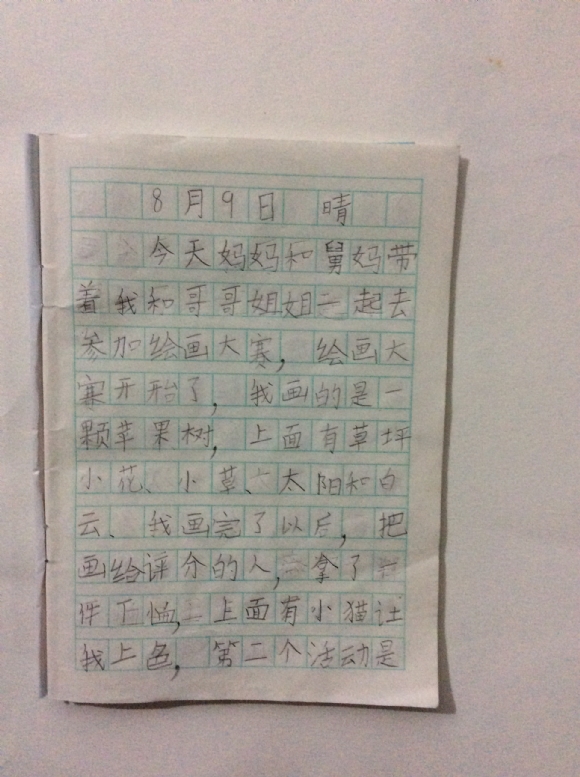 8月9日 晴
今天妈妈和舅妈带
着我和哥哥姐姐一起去
参加绘画大赛，绘画大
赛开始了，我画的是一
颗苹果树，上面有草坪
小花、小草、太阳和白
云、我画完了以后，把
画给评分的人，拿了
件T恤，上面有小猫让
我上色，第二个活动是